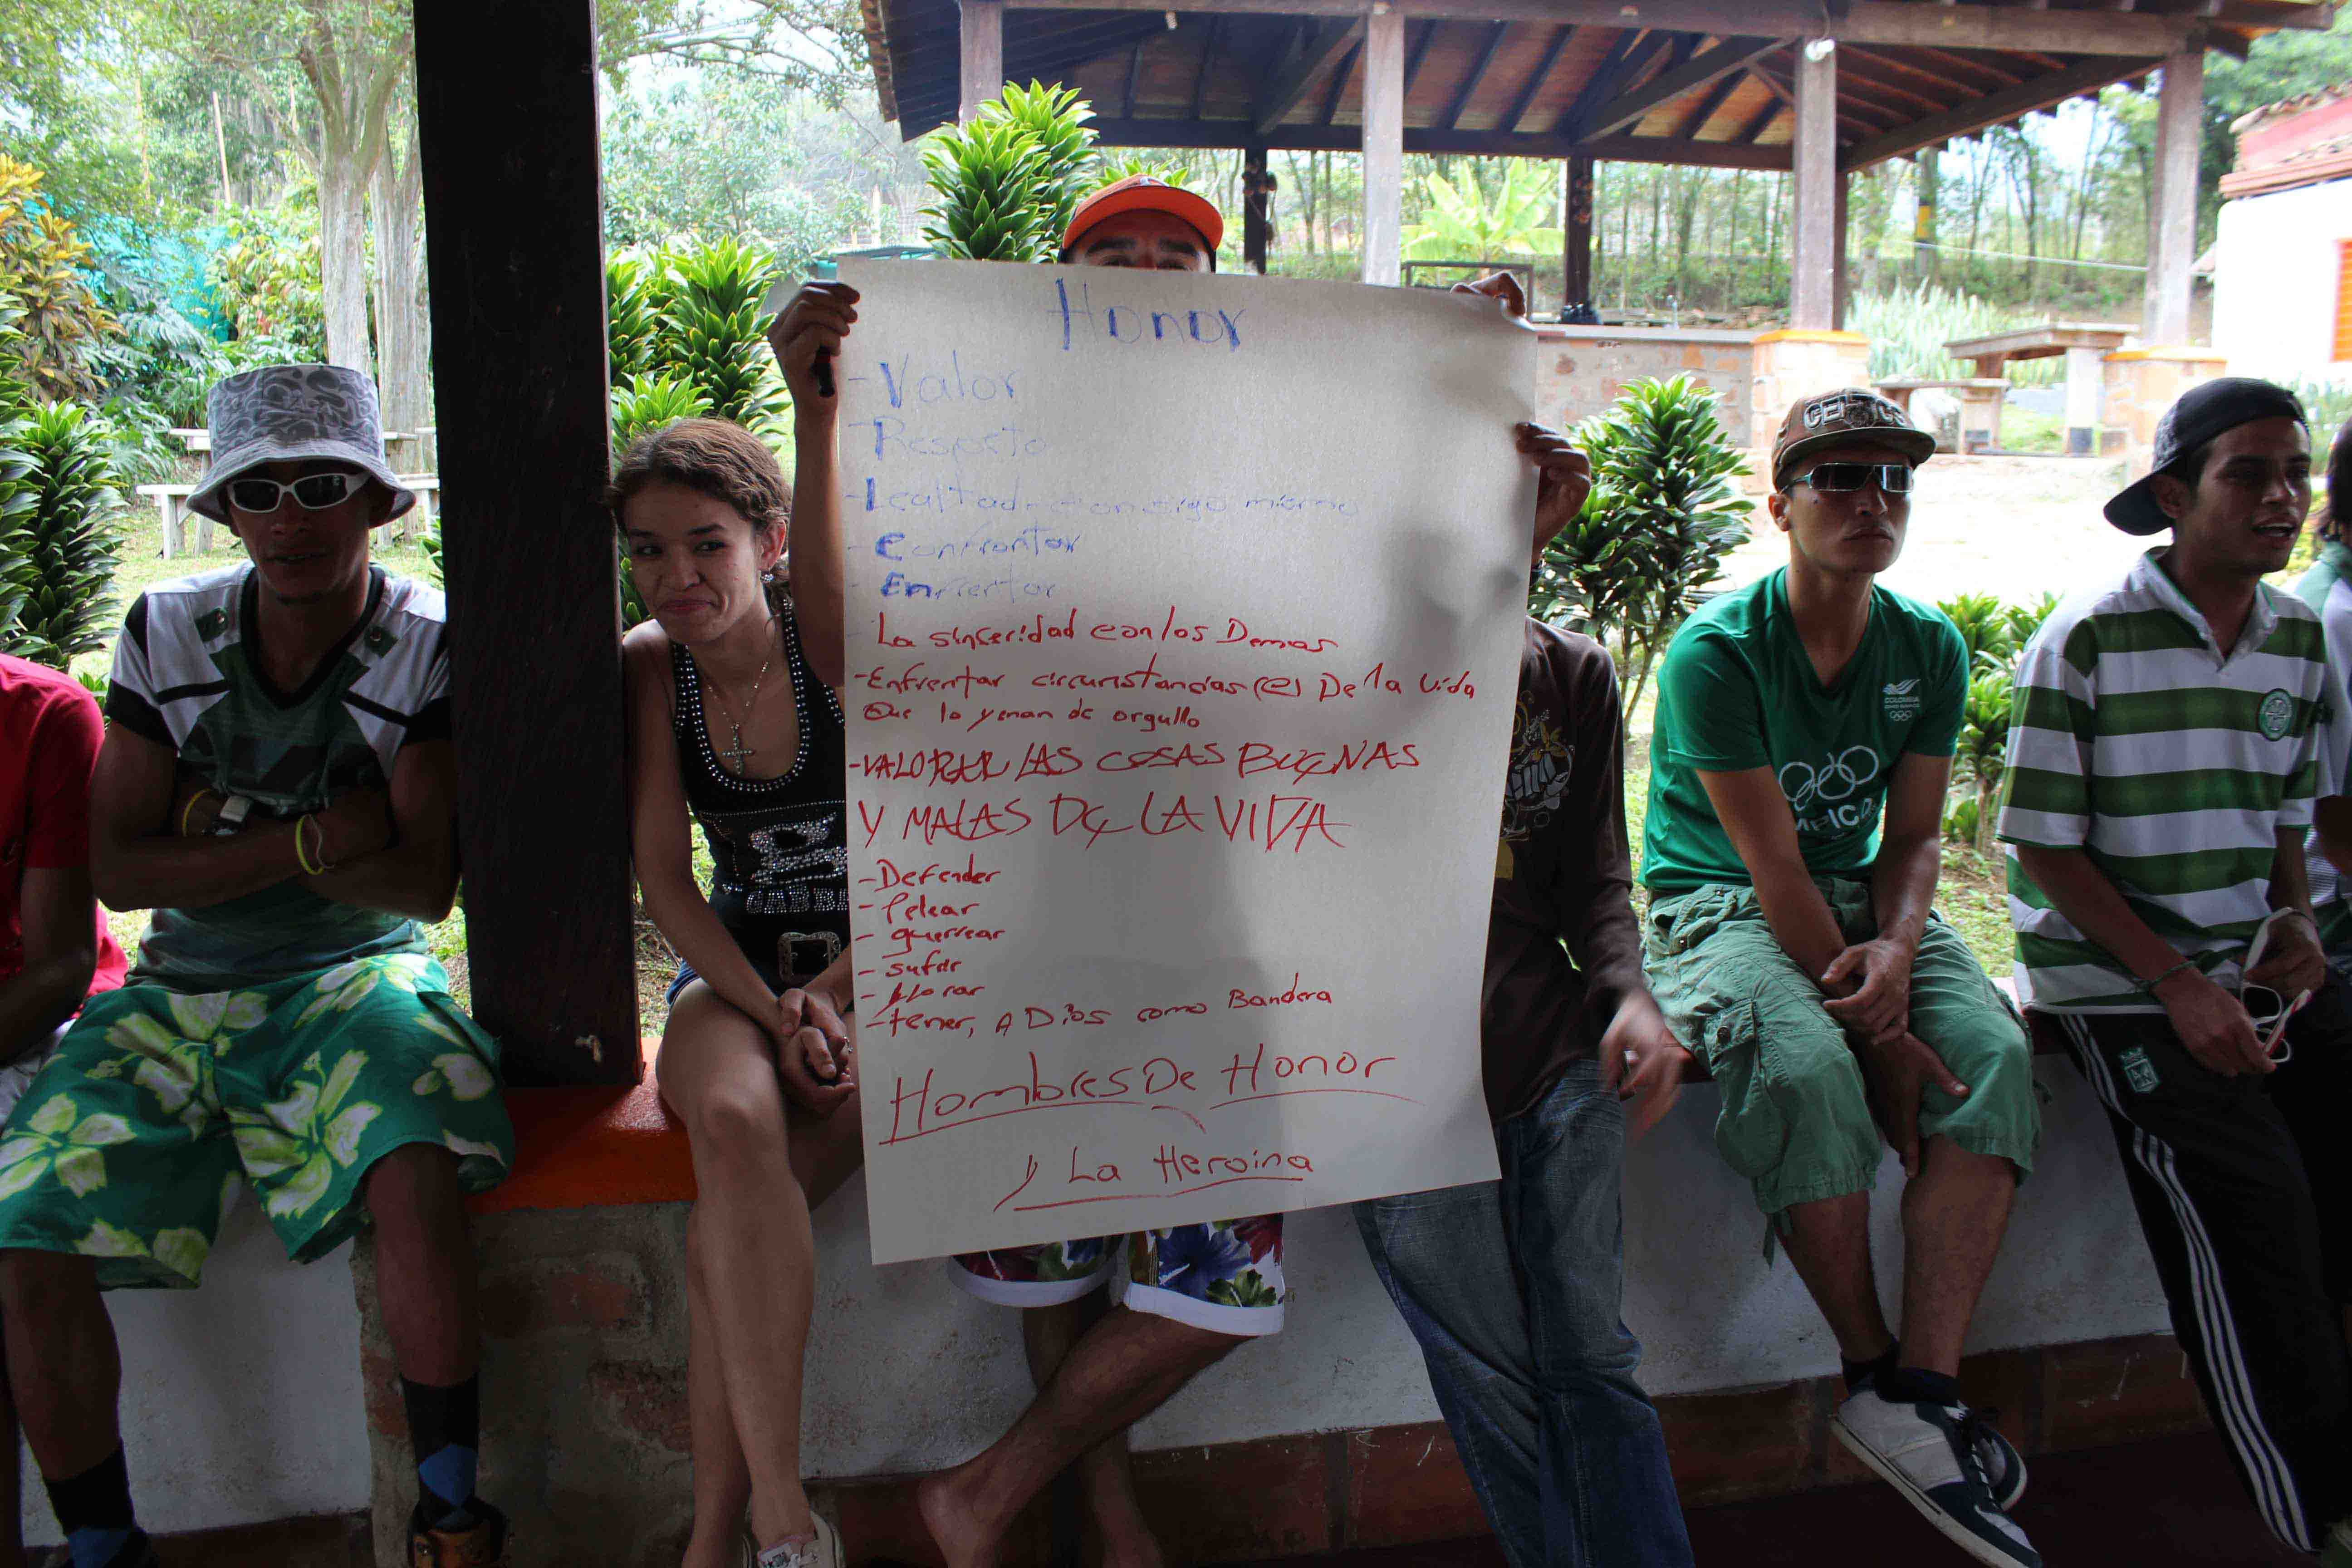 Honor
- Valor
- Respeto
- Lealtad - consigo mismo
- Confrontar
- Enfrentar
- La sinceridad con los Demas
- Enfrentar circunstancias (e) De la vida
Que lo yenan de orgullo
- VALORAR LAS COSAS BUENAS
Y MALAS DE LA VIDA
- Defender
- Pelear
- guerrear
- sufrir
- llorar
- tener, A Dios como Bandera
Hombres De Honor
y La Heroina
COLOMBIA